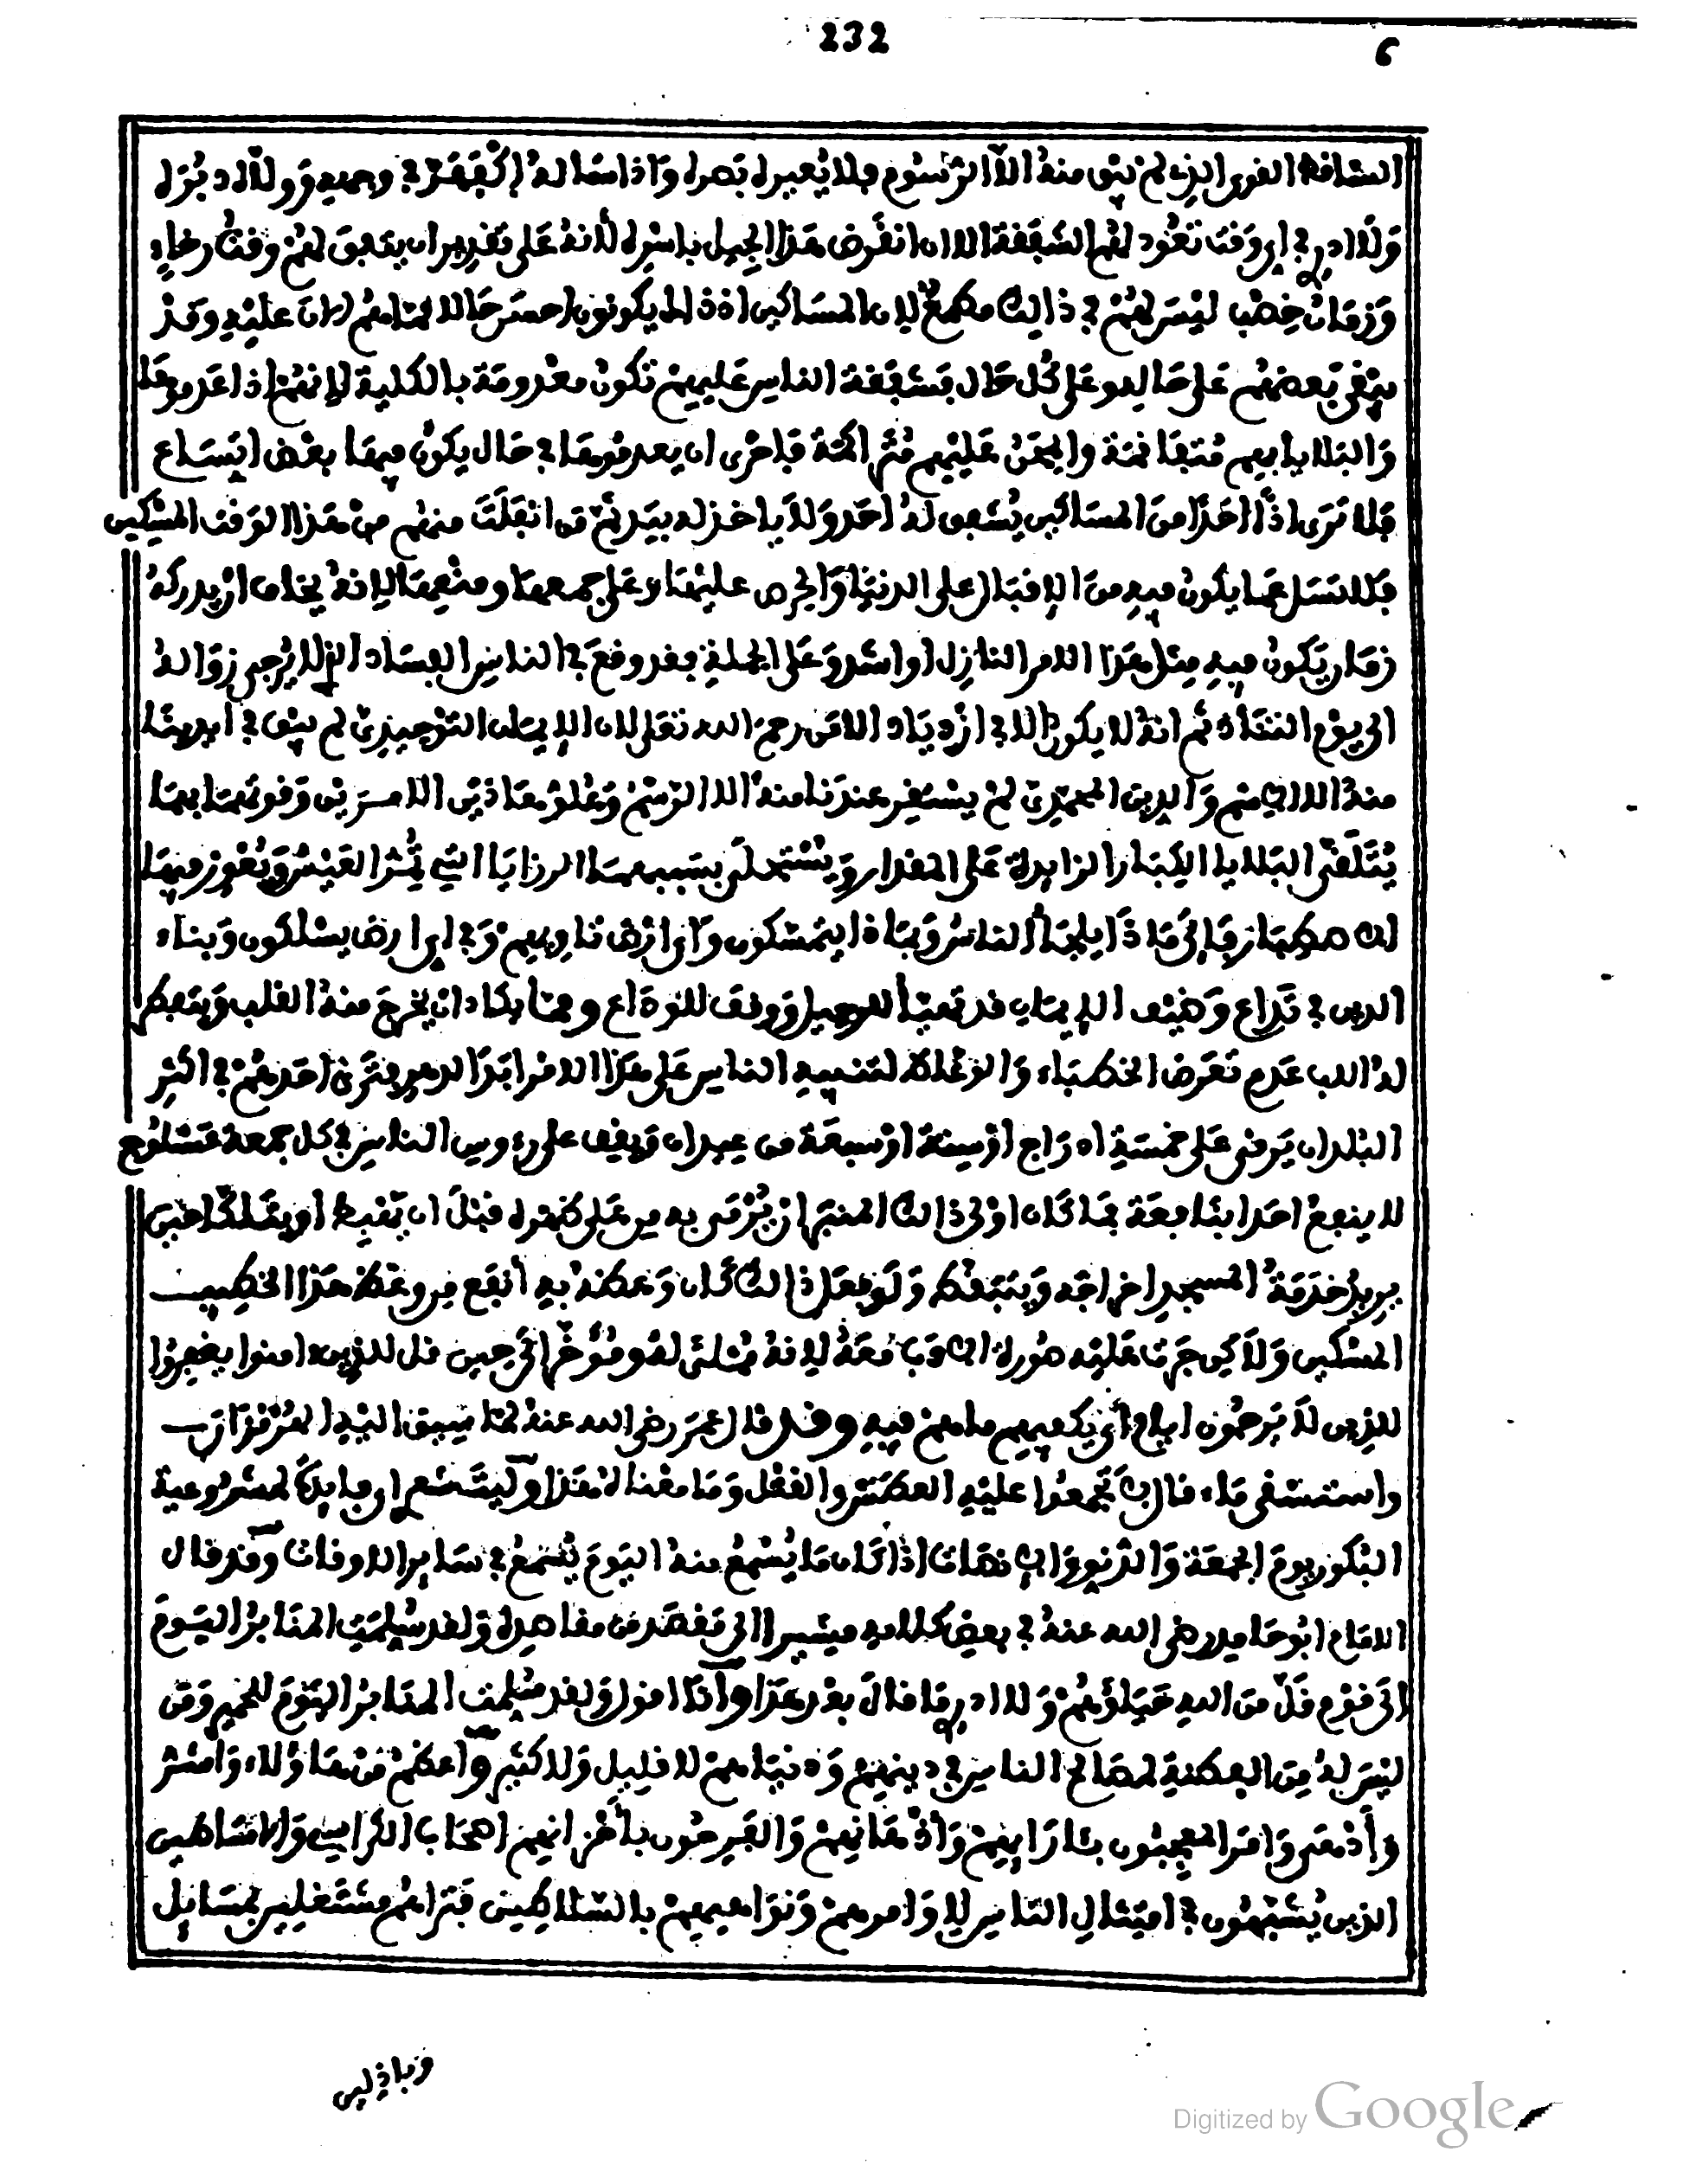 232
6
الساقط القوى الذي لم يبق منه الا الرسوم فلا يعيره بصره واذا سأله اكفهر في وجهه وولاه دبره
ولا ادري في اي وقت تعود لهم الشفقة الا ان انقرض هذا الجيل باسره لأنه على تقدير ان يتفق لهم وقت رخاء
وزمان خصب ليس لهم في ذالك مطمع لان المساكين اذ ذاك يكونون احسن حالا مما هم الان عليه وقد
يبقى بعضهم على حاله وعلى كل حال فشفقة الناس عليهم تكون معدومة بالكلية لإنهم اذا عدموها
والبلايا بهم متفاقمة والمحن عليهم متراكمة فاحرى ان يعدموها في حال يكون فيها بعض اتساع
فلا ترى اذا احدا من المساكين يشفق له احد ولا ياخذ له بيد ثم من انفلت منهم من هذا الوقت المسكين
فلا تسل عما يكون فيه من الإقبال على الدنيا والحرص عليها وعلى جمعها ومنعها لإنه يخاف ان يدركه
زمان يكون فيه مثل هذا الامر النازل او اشد وعلى الجملة فقد وقع في الناس الفساد الذي لا يرجى زواله
الى يوم التناد ثم انه لا يكون الا في ازدياد الا من رحم الله تعالى لان الايمان التوحيدي لم يبق في ايدينا
منه الا الاسم والدين المحمدي لم يستقر عندنا منه الا الرسم وعلو هاذين الامرين وقوتهما بهما
يتلقى البلايا الكبار الزايدة على المقدار ويستحلى بسببهما الرزايا التي تمر العيش وتعوز فيها
الاصطبار فالى ماذا يلجأ الناس وبماذا يتمسكون والى اي ركن ياوون وفي اي ارض يسلكون وبناء
الدين في تداع وضيف الايمان قد تهيأ للرحيل ووقف للوداع ومما يكاد ان يخرج منه القلب ويتفطر
له اللب عدم تعرض الخطباء والوعاظ لتنبيه الناس على هذا الامر ابدا لدهر فترى احدهم في اكثر
البلدان يرقى على خمسة ادراج او ستة او سبعة من عيدان ويقف على رءوس الناس في كل جمعة
لا ينفع احدا بنافعة فما كان اولى ذالك المنبر ان يرمى به من على ظهره قبل ان
يريد خدمة المسجد اخراجه ولو فعل ذالك كان وعظه به أنفع من وعظ هذا الخطيب
المسكين ولاكن جرت عليه صورة لانه يتلى لهم مؤخرا الى حين قل للذين ءامنوا يغفروا
للذين لا يرجون ايام أي يكفيهم ما هم فيه وقد قال عمر رضي الله عنه لما سيق اليه الهرمزان
واستسقى ماء قال لا تجمعوا عليه العطش والقتل وما معنا لاهذا وليت شعري اي فايدة لمشروعية
البكور يوم الجمعة والدنو والانصات اذا كان ما يسمع منه اليوم يسمع في ساير الاوقات وقد قال
الامام ابو حامد رضي الله عنه في بعض كلامه مشيرا الى مقصد من مقاصده ولقد سلمت المنابر اليوم
الى قوم قل من الله حياؤهم ولا ادري ما قال بعد هذا وأنا اقول ولقد سلمت المنابر اليوم للحمير ومن
ليس له من الفطنة لمصالح الناس في دينهم ودنياهم لا قليل ولا كثير وأعظم من هاؤلاء وأشر
وأدهى وامر المعجبون بئارايهم واذهانهم والفرحون باحزانهم اصحاب الكراسي والاساطين
الذين يشبهون في امتثال الناس لاوامرهم ونواهيهم بالسلاطين فتراهم مشتغلين بمسايل
وباذلين
Digitized by Google